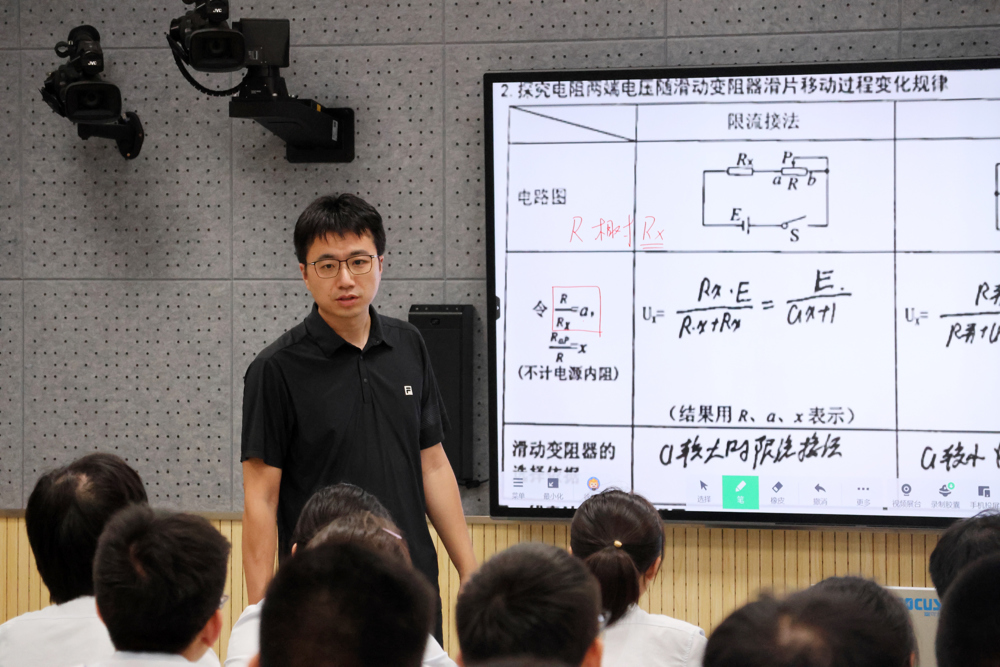 JVC
JVC
2. 探究电阻两端电压随滑动变阻器滑片移动过程变化规律
限流接法
电路图
Rx
P
a
R
b
E
S
R 相对 Rx
令 R/Rx=a,
RaP/R=x
(不计电源内阻)
Ux= Rx·E/(R·x+Rx) = E/(ax+1)
Ux=
(结果用 R、a、x 表示)
滑动变阻器的
选择依据
a较大时限流接法
a较小
菜单
最小化
选择
笔
橡皮
撤消
更多
视频展台
录制胶囊
F
OCUS